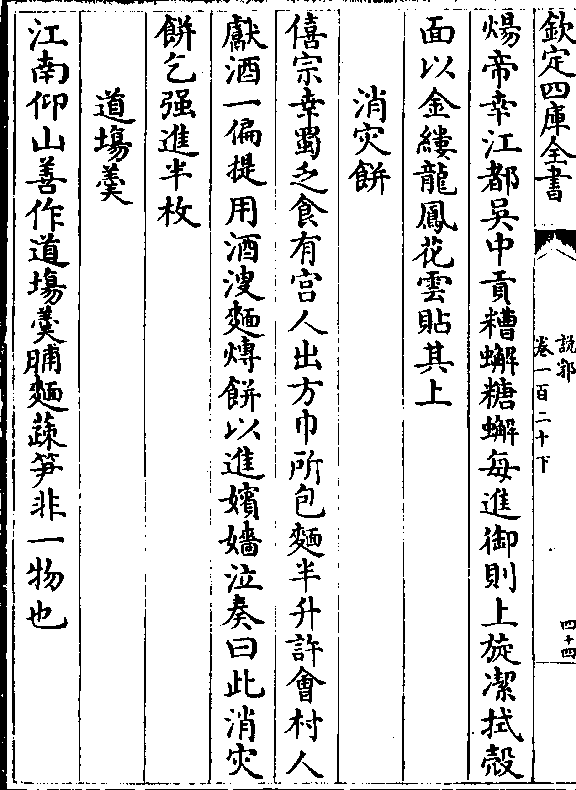 欽定四庫全書
說郛
卷一百二十下
四十四
煬帝幸江都吳中貢糟蠏糖蠏每進御則上旋潔拭殼
面以金縷龍鳳花雲貼其上
消灾餅
僖宗幸蜀乏食有宫人出方巾所包麵半升許會村人
獻酒一偏提用酒溲麵煿餅以進嬪嬙泣奏曰此消灾
餅乞强進半枚
道塲羹
江南仰山善作道塲羹脯麵蔬笋非一物也